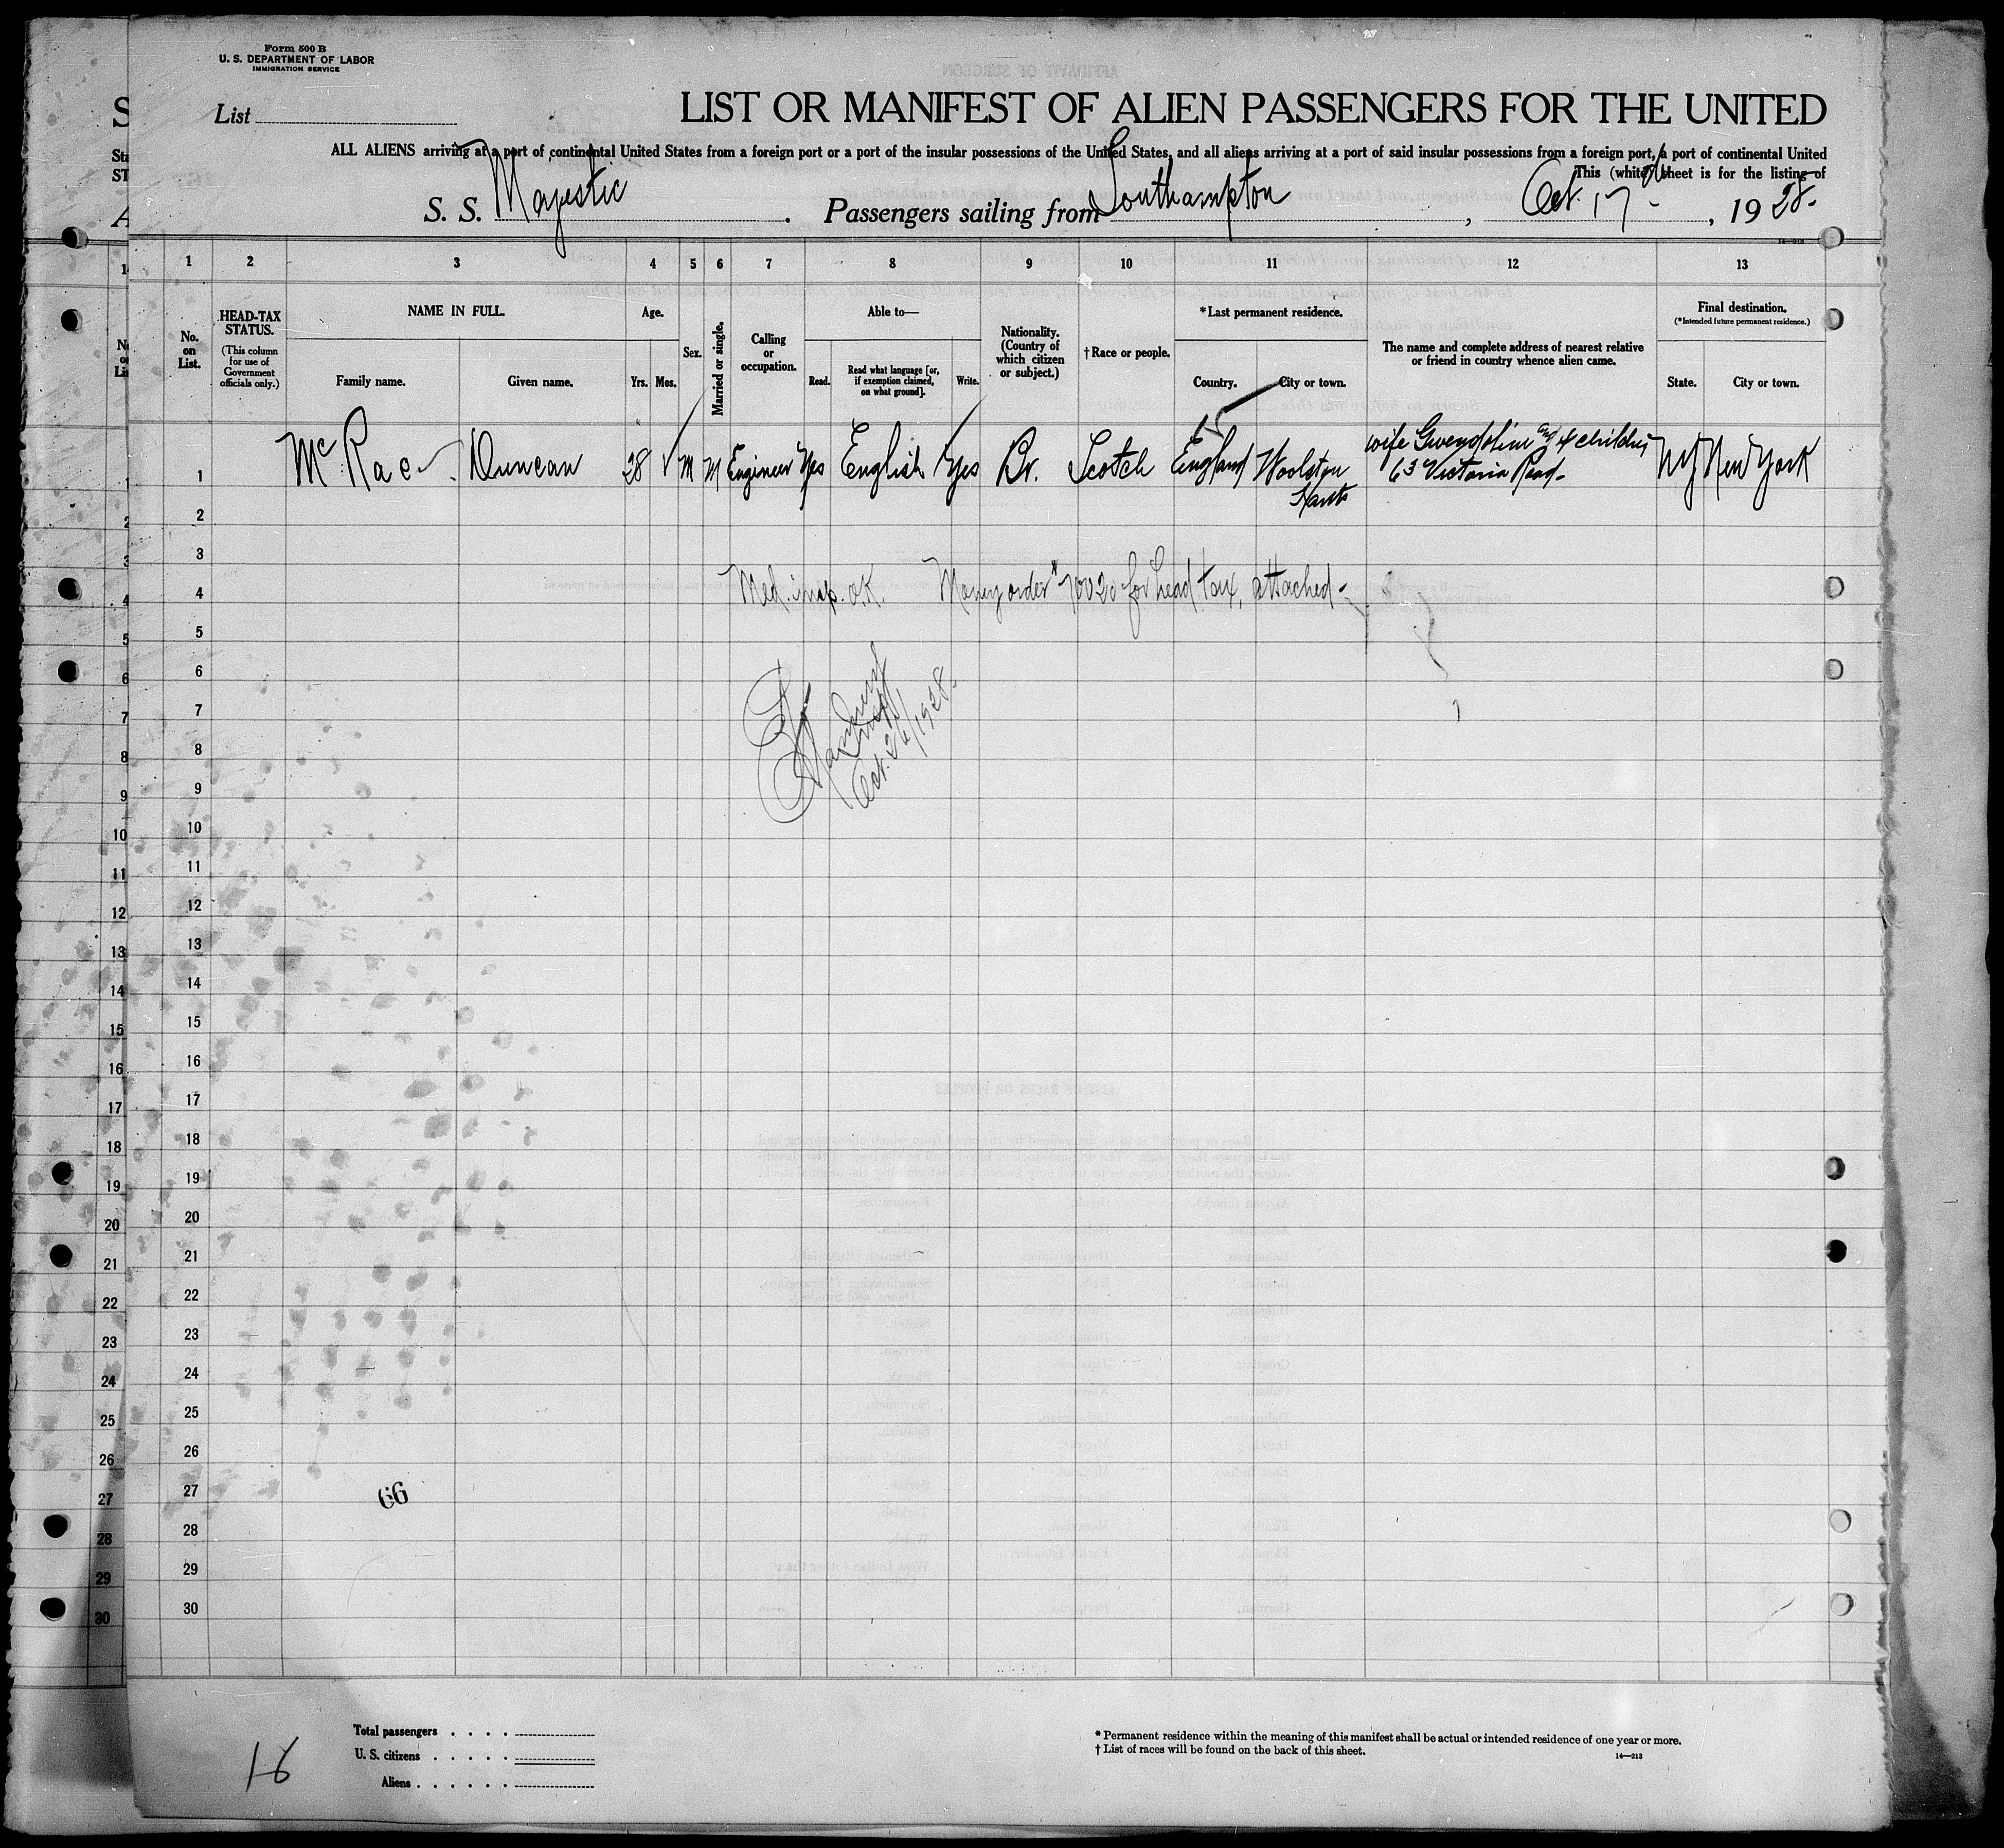 Form 500 B
U. S. DEPARTMENT OF LABOR
IMMIGRATION SERVICE
List
LIST OR MANIFEST OF ALIEN PASSENGERS FOR THE UNITED
ALL ALIENS arriving at a port of continental United States from a foreign port or a port of the insular possessions of the United States, and all aliens arriving at a port of said insular possessions from a foreign port, a port of continental United
This (white) sheet is for the listing of
S. S. Majestic. Passengers sailing from Southampton, Oct. 17th, 1928.
14—213
1 2 3 4 5 6 7 8 9 10 11 12 13
No. on List.
HEAD-TAX STATUS.
(This column for use of Government officials only.)
NAME IN FULL.
Family name. Given name.
Age.
Yrs. Mos.
Sex.
Married or single.
Calling or occupation.
Able to—
Read. Read what language [or, if exemption claimed, on what ground]. Write.
Nationality. (Country of which citizen or subject.)
† Race or people.
* Last permanent residence.
Country. City or town.
The name and complete address of nearest relative or friend in country whence alien came.
Final destination.
(* Intended future permanent residence.)
State. City or town.
1 McRae Duncan 28 M M Engineer Yes English Yes Br. Scotch England Woolston Hants wife Gwendoline and 4 children 63 Victoria Road NY New York
2
3
4 Med. insp. O.K. Money order # for head tax, attached
5
6
7
Oct. 26/1928.
8
9
10
11
12
13
14
15
16
17
18
19
20
21
22
23
24
25
26
27
66
28
29
30
Total passengers
U. S. citizens
Aliens
16
* Permanent residence within the meaning of this manifest shall be actual or intended residence of one year or more.
† List of races will be found on the back of this sheet.
14—213